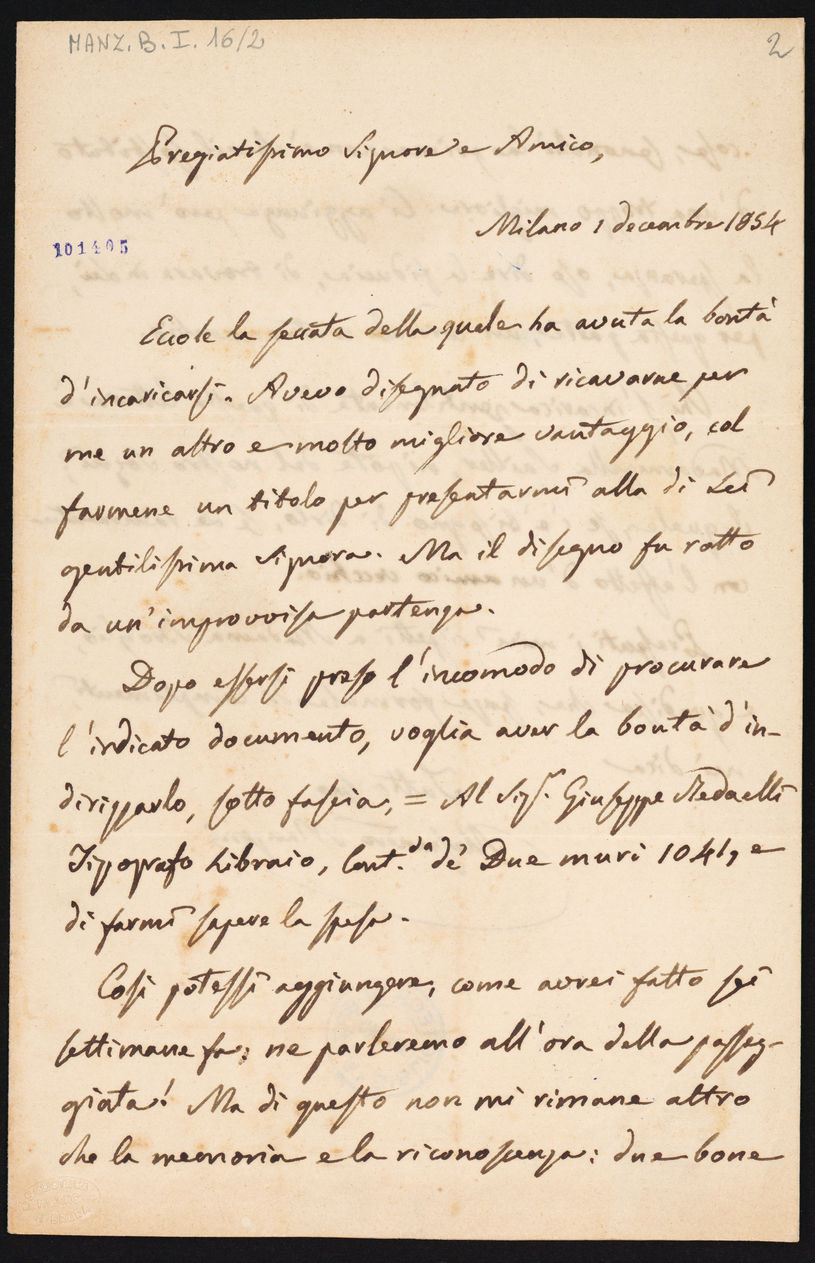 MANZ. B. I. 16/2
2
Pregiatissimo Signore e Amico,
Milano 1 decembre 1854
101405
Eccole la seccata della quale ha avuta la bontà
d'incaricarsi. Avevo disegnato di ricavarne per
me un altro e molto migliore vantaggio, col
farmene un titolo per presentarmi alla di Lei
gentilissima Signora. Ma il disegno fu rotto
da un'improvvisa partenza.
Dopo essersi preso l'incomodo di procurare
l'indicato documento, voglia aver la bontà d'in-
dirizzarlo, sotto fascia, = Al Sigr. Giuseppe Redaelli
Tipografo Libraio, Cont.da de' Due muri 1041, e
di farmi sapere la spesa.
Così potessi aggiungere, come avrei fatto sei
settimane fa: ne parleremo all'ora della passeg-
giata! Ma di questo non mi rimane altro
che la memoria e la riconoscenza: due bone